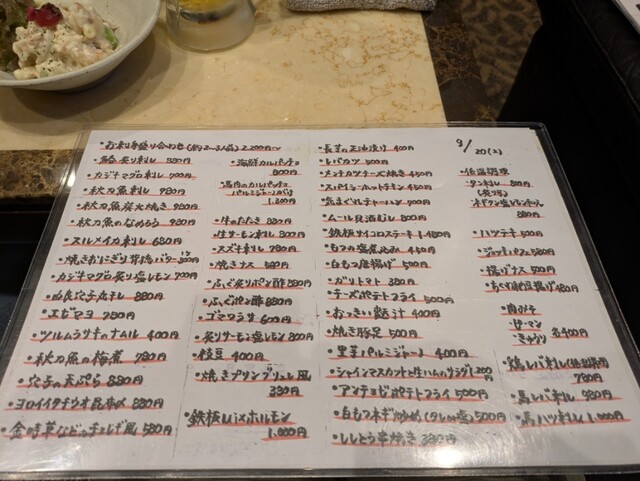 9/20(土)
・お刺身盛り合わせ(約2〜3人前) 2,200円〜
・鯵炙り刺し 880円
・カジキマグロ刺し 700円
・秋刀魚刺し 980円
・秋刀魚炭火焼き 980円
・秋刀魚のなめろう 980円
・スルメイカ刺し 680円
・焼きおにぎり背脂バター 300円
・カジキマグロ炙り塩レモン 700円
・穴子刺し 880円
・エビマヨ 780円
・ツルムラサキのナムル 400円
・秋刀魚の梅煮 780円
・穴子の天ぷら 880円
・ヨロイイタチウオ昆布〆 880円
・金時草などっチョレギ風 580円
・海鮮カルパッチョ 800円
・馬肉のカルパッチョ
パルミジャーノがけ
1,200円
・牛のたたき 880円
・生サーモン刺し 800円
・スズキ刺し 780円
・焼きナス 580円
・ふぐ炙りポン酢 880円
・ふぐポン酢 880円
・ゴマワラサ 600円
・炙りサーモン塩レモン 800円
・枝豆 400円
・焼きプリンブリュレ風
380円
・鉄板Mixホルモン
1,000円
・長芋の正油漬け 400円
・レバカツ 500円
・メンチカツチーズ焼き 450円
・スパイシーカットチキン 450円
・ムール貝酒むし 800円
・鉄板サイコロステーキ 1,480円
・もつの塩煮込み 450円
・白もつ唐揚げ 500円
・ガリトマト 380円
・チーズポテトフライ 500円
・おっきい豚汁 400円
・焼き豚足 500円
・里芋パルミジャーノ 400円
・シャインマスカットと生ハムのサラダ 1,200円
・アンチョビポテトフライ 500円
・白もつネギ炒め(タレor塩) 500円
・ししとう串焼き 380円
・低温調理
・タン刺し 800円
・ネギタン塩ユッケ
880円
・ハツテキ 500円
・揚げナス 500円
・肉みそ
・ピーマン
・きゅうり
各400円
・鶏レバ刺し(低温調理)
780円
・馬レバ刺し 980円
・馬ハツ刺し 1,000円